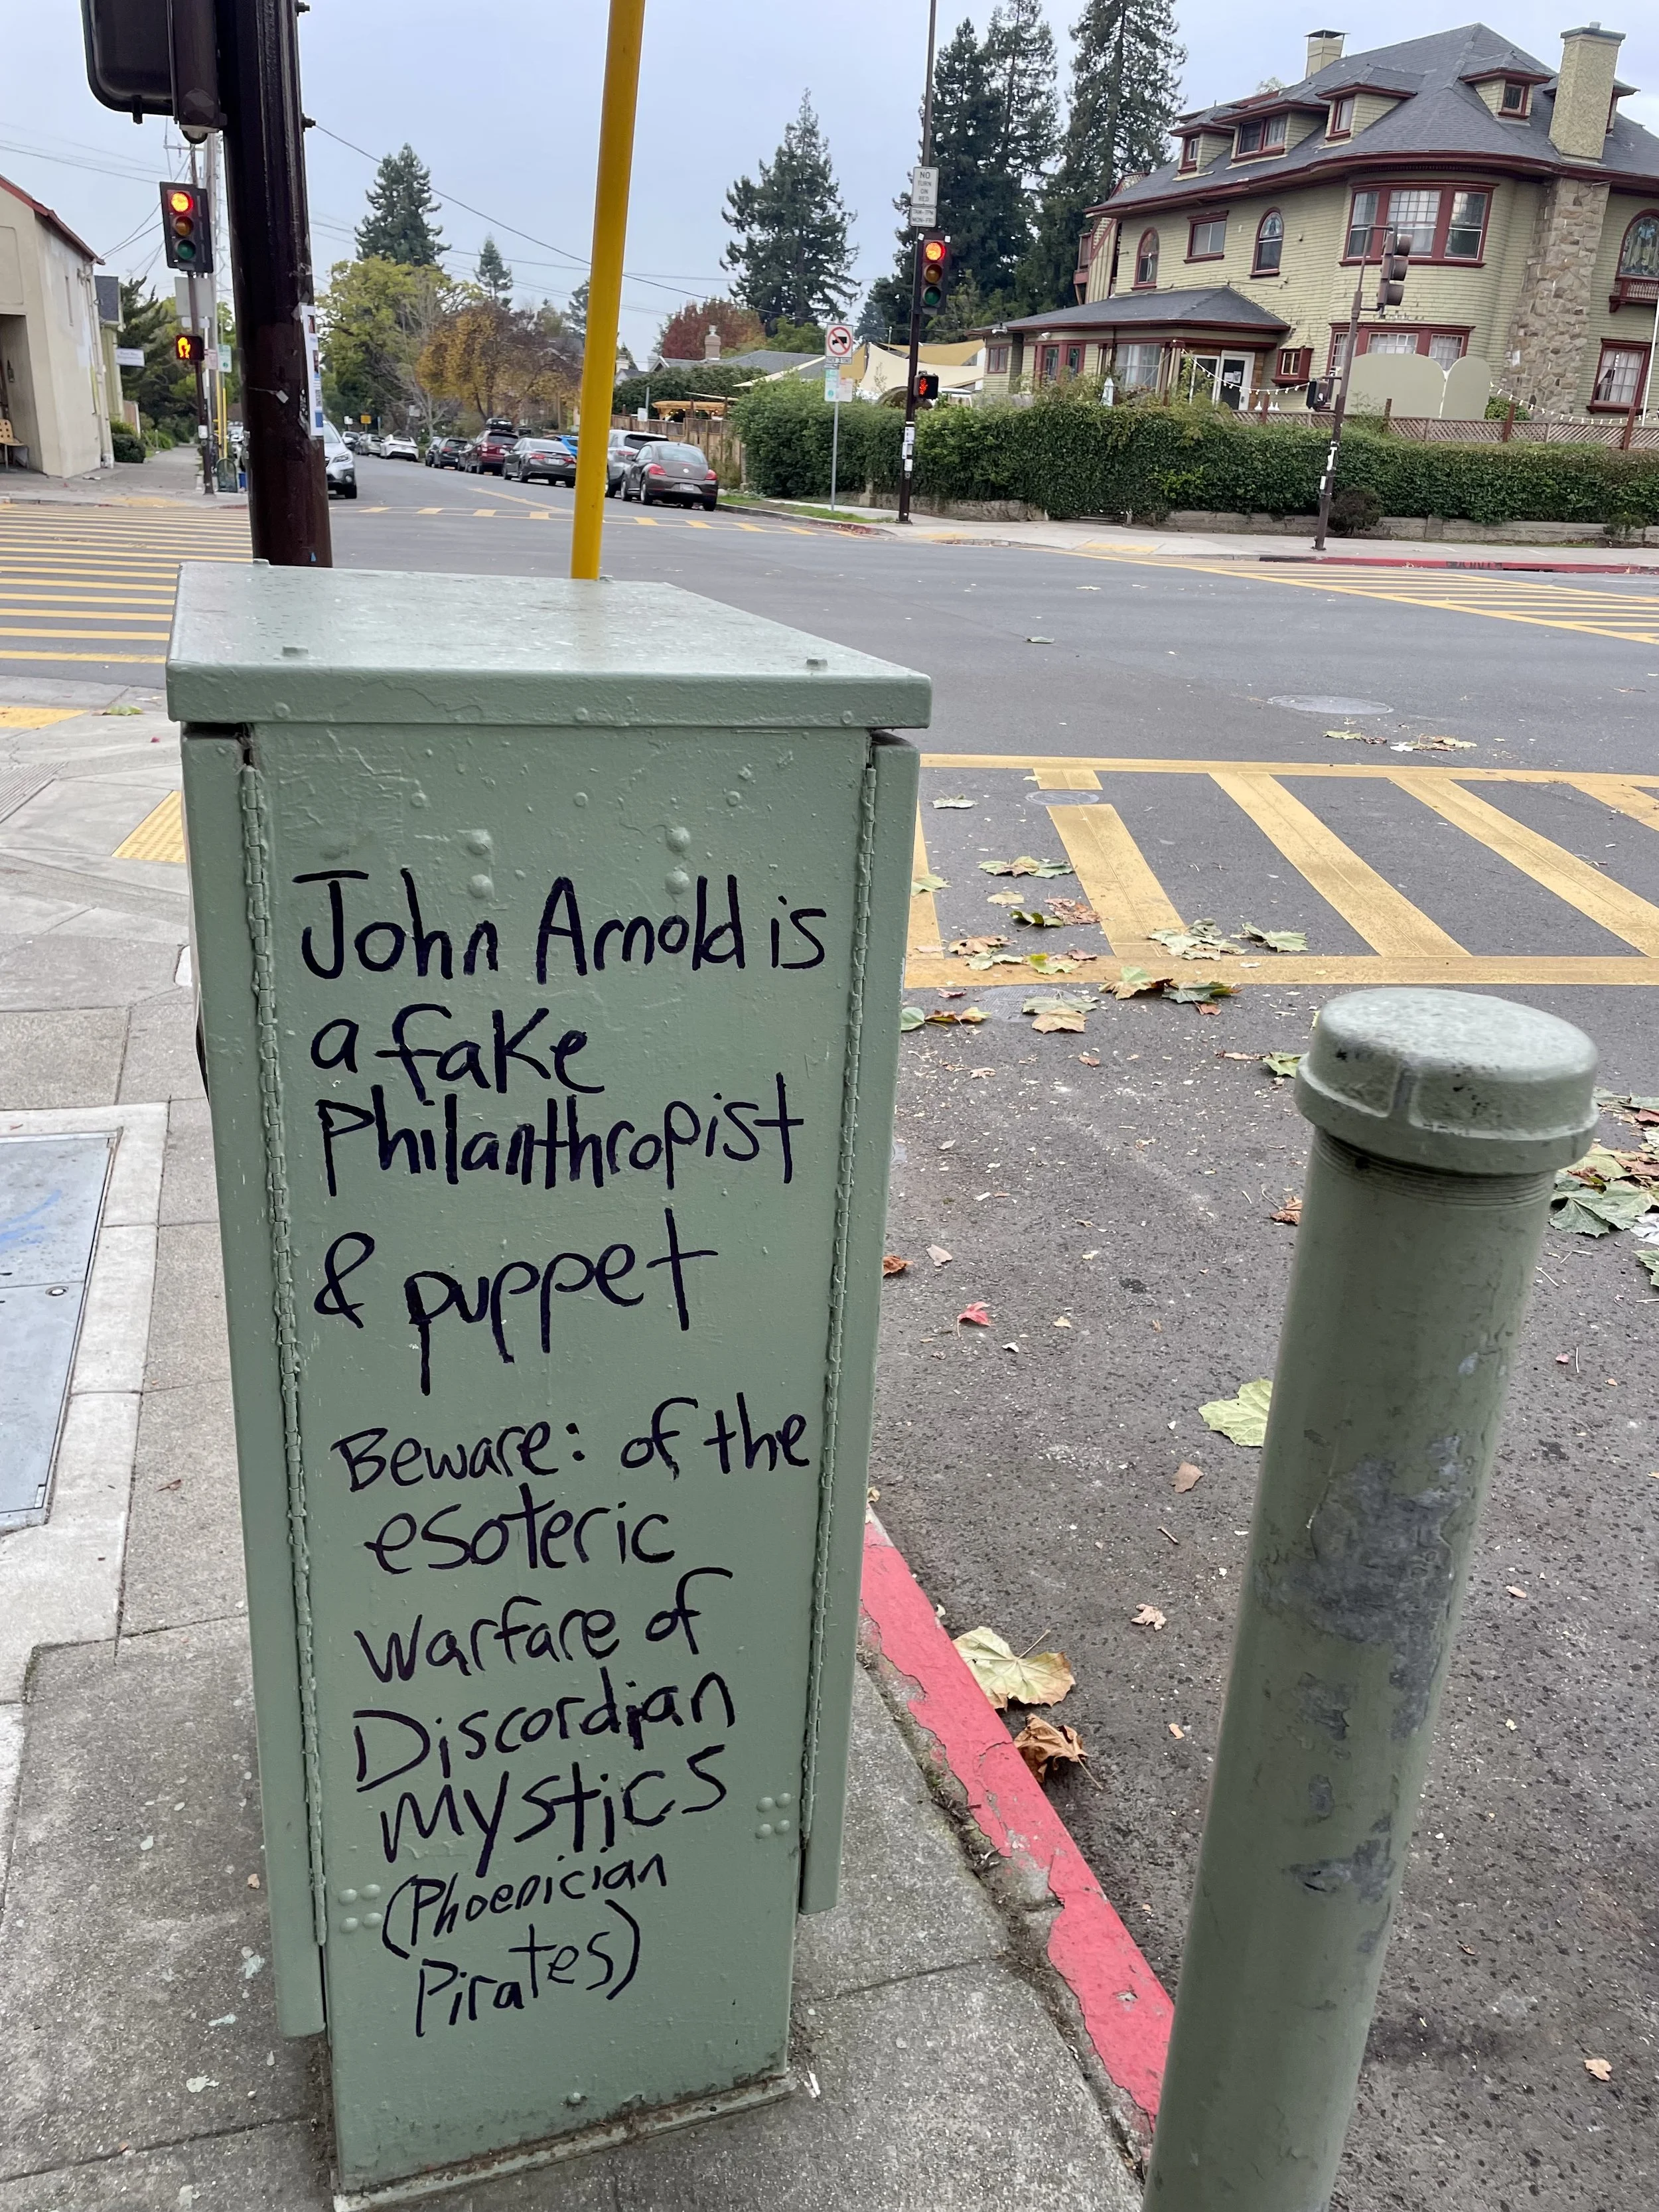 NO
TURN
ON
RED
John Arnold is
a fake
Philanthropist
& puppet
Beware: of the
esoteric
warfare of
Discordian
mystics
(Phoenician
Pirates)